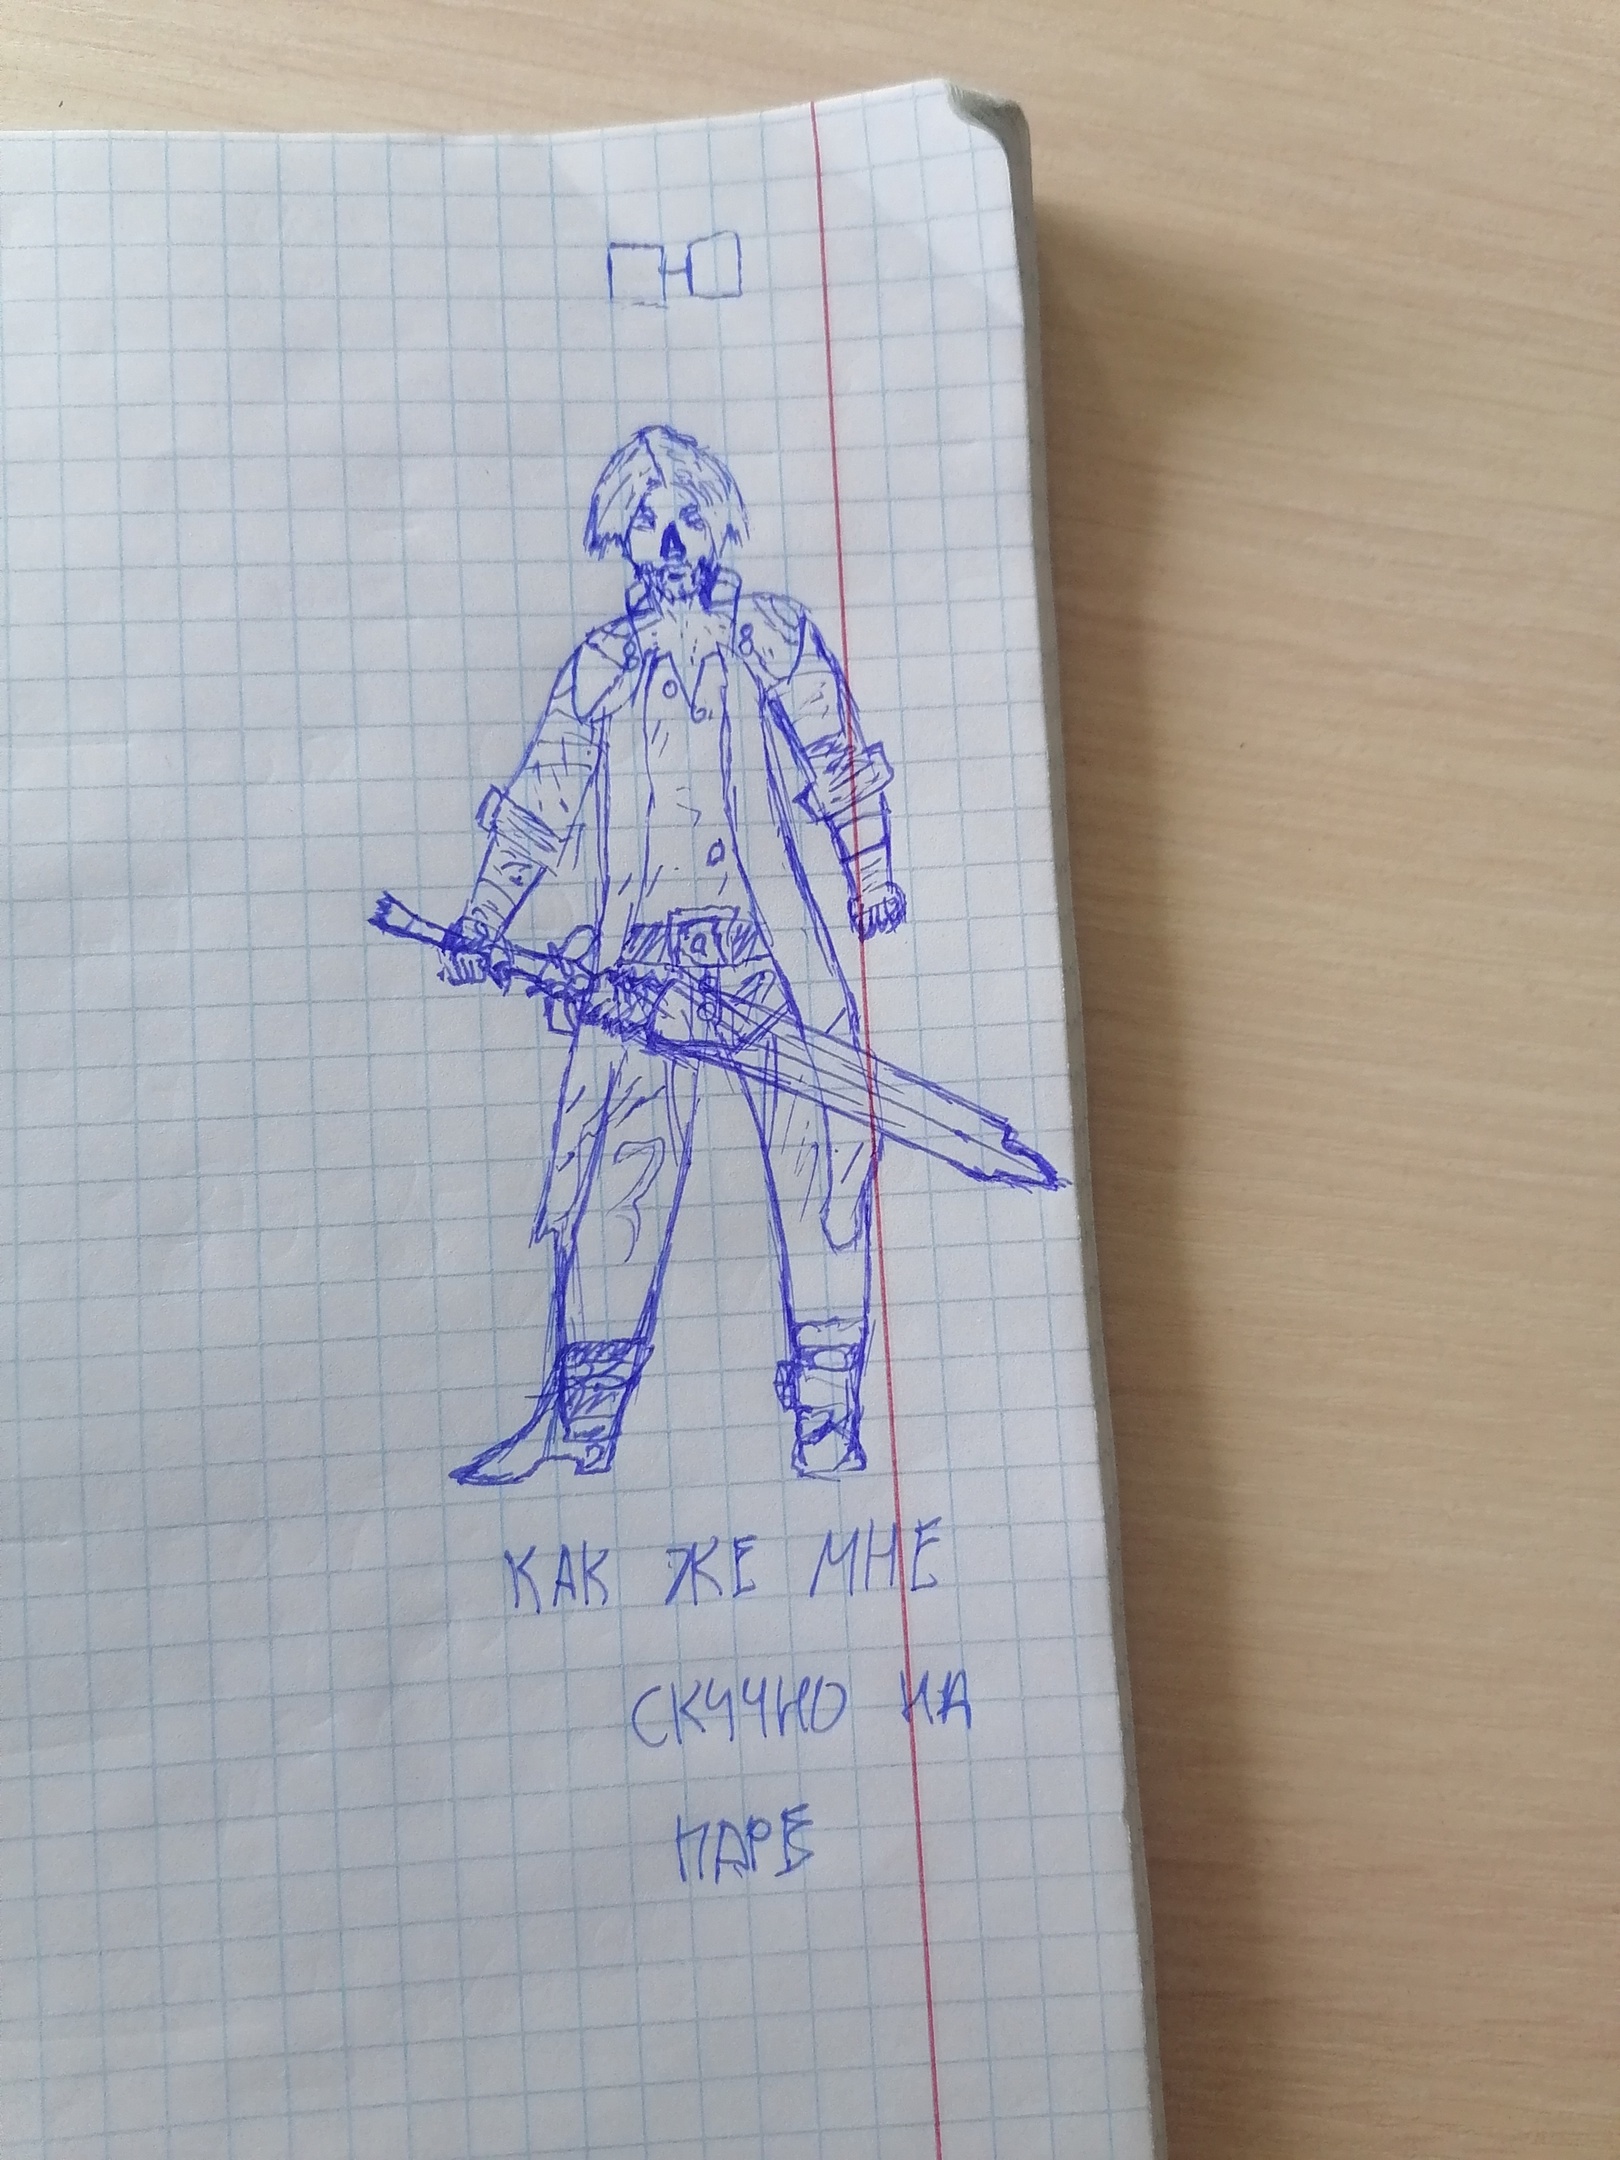 КАК ЖЕ МНЕ
СКУЧНО НА
ПАРЕ